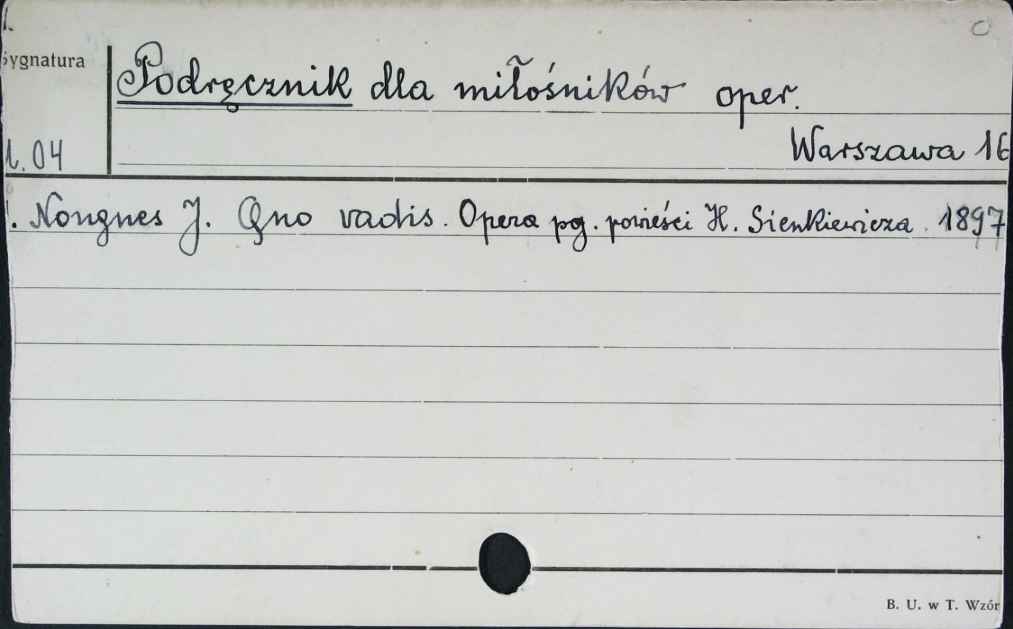 Sygnatura
Podręcznik dla miłośników oper.
1.04
Warszawa 16
. Nougues J. Quo vadis. Opera pg. powieści H. Sienkiewicza. 1897
B. U. w T. Wzór